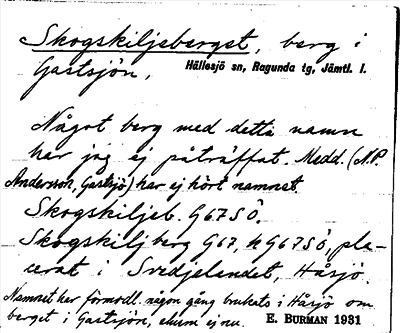 Skogskiljeberget, berg i
Gastsjön, Hällesjö sn, Ragunda tg, Jämtl. l.
Något berg med detta namn
har jag ej påträffat. Medd. (N.P.
Andersson, Gastsjö) har ej hört namnet.
Skogskiljeb. G67SÖ.
Skogskiljberg G67, h G67SÖ, pla-
cerat i Svedjelandet, Håsjö.
Namnet har förmodl. någon gång brukats i Håsjö om
berget i Gastsjön, ehuru ej nu. E. BURMAN 1931